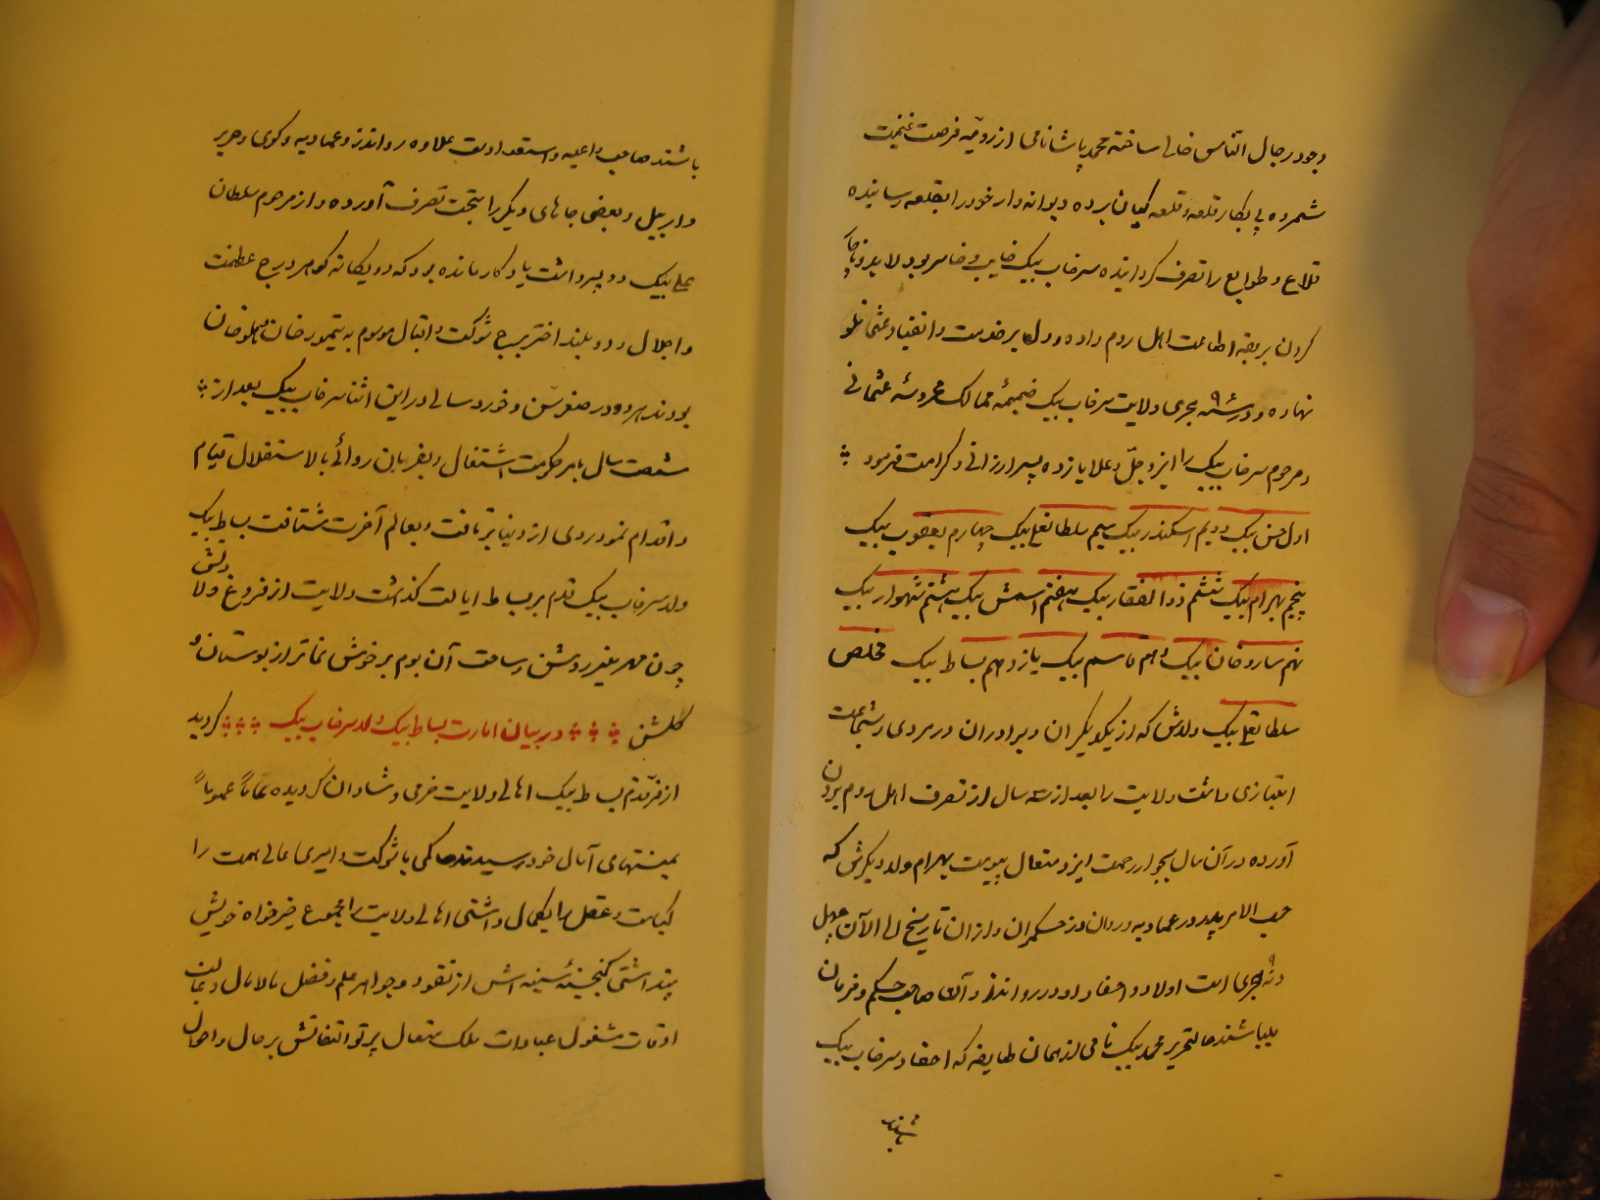 وجود رجال التماس خالی ساخته محمد پاشا نامی از رومیه فرصت غنیمت
شمرده پی بکار قلعه و قلعه کیان برده دیوانه وار خود را بقلعه رسانیده
قلاع و طوایع را تصرف کردانیده سرخاب بیک خایب و خاسر بود لابد و ناچار
کردن بربقه اطاعت اهل روم داده و دل بر خدمت و انقیاد عثمانلو
نهاده و در سنه هجری ولایت سرخاب بیک ضمیمه ممالک محروسه عثمانی
و مرحوم سرخاب بیک را ایزد جل و علا یازده پسر ارزانی و کرامت فرمود
اول حسن بیک دویم اسکندر بیک سیم سلطانعلی بیک چهارم یعقوب بیک
پنجم بهرام بیک ششم ذوالفقار بیک هفتم اسمش بیک هشتم شهسوار بیک
نهم ساروخان بیک دهم قاسم بیک یازدهم بساط بیک مخلص
سلطانعلی بیک ولدش که از یکدیگران و برادران در مردی و شجاعت
امتیازی داشت ولایت را بعد از سه سال از تصرف اهل روم بیرون
آورده در آن سال بجوار رحمت ایزد متعال پیوست بهرام ولد دیکرش که
حسب الامر پدر در عمادیه و روان دز حکمران و از آن تاریخ الی الآن
هجری است اولاد و احفاد او در رواندز و آلان صاحب حکم و فرمان
میباشند حالتحریر محمد بیک نامی از همان طایفه که احفاد سرخاب بیک
باشند
باشند صاحب داعیه و استعداد است علاوه رواندز و عمادیه و کوی و حریر
و اربیل و بعضی جاهای دیکر را بتحت تصرف آورده و از مرحوم سلطان
علی بیک دو پسر داشت یادکار مانده بود که دو یکانه کوهر درج عظمت
و اجلال و دو بلند اختر برج شوکت و اقبال موسوم به تیمور خان و هلوخان
بودند هر دو در صغر سن و خورد سالی در این اثنا سرخاب بیک بعد از
شصت سال بامر حکومت اشتغال و بفرمان روائی بالاستقلال قیام
و اقدام نمود روی از دنیا برتافت و بعالم آخرت شتافت بساط بیک
ولد سرخاب بیک قدم بر بساط ایالت کذاشت ولایت از فروغ ولادتش
چون مهر منیر روشن و ساحت آن بوم بر خوش نماتر از بوستان و
کلشن در بیان امارت بساط بیک ولد سرخاب بیک کردید
از فر قدم بساط بیک اهالی ولایت خرمی و شادان کردیده تماما عموما
بمنتهای آمال خود رسیدند حاکمی با شوکت و امیری عالی همت را
کیاست و عقل را بکمال داشتی اهالی ولایت را مجموع خیر خواه خویش
پنداشتی کنجینه سینه اش از نقود و جواهر علم و فضل مالامال و غالب
اوقات مشغول عبادات ملک متعال پرتو التفاتش بر حال و احوال